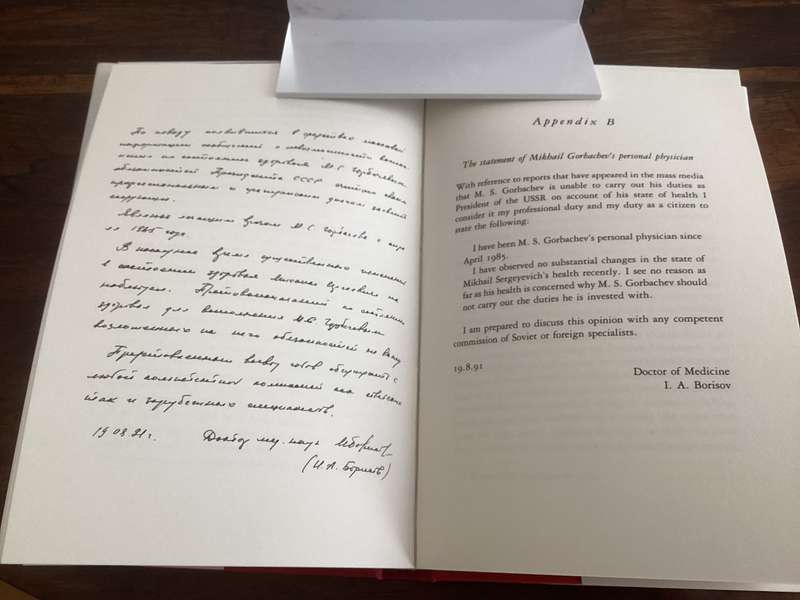 По поводу появившихся в средствах массовой
информации сообщений о невозможности выпол-
нения по состоянию здоровья М.С. Горбачевым
обязанностей Президента СССР считаю своим
профессиональным и гражданским долгом заявить
следующее.
Являюсь лечащим врачом М.С. Горбачева с апре-
ля 1985 года.
В последнее время существенных изменений
в состоянии здоровья Михаила Сергеевича не
наблюдал. Противопоказаний по состоянию
здоровья для выполнения М.С. Горбачевым
возложенных на него обязанностей не вижу.
вывод готов обсуждать с
любой компетентной комиссией как
так и зарубежных специалистов.
19.08.91г. Доктор мед. наук
(И.А. Борисов)
Appendix B
The statement of Mikhail Gorbachev's personal physician
With reference to reports that have appeared in the mass media
that M. S. Gorbachev is unable to carry out his duties as
President of the USSR on account of his state of health I
consider it my professional duty and my duty as a citizen to
state the following:
I have been M. S. Gorbachev's personal physician since
April 1985.
I have observed no substantial changes in the state of
Mikhail Sergeyevich's health recently. I see no reason as
far as his health is concerned why M. S. Gorbachev should
not carry out the duties he is invested with.
I am prepared to discuss this opinion with any competent
commission of Soviet or foreign specialists.
19.8.91 Doctor of Medicine
I. A. Borisov